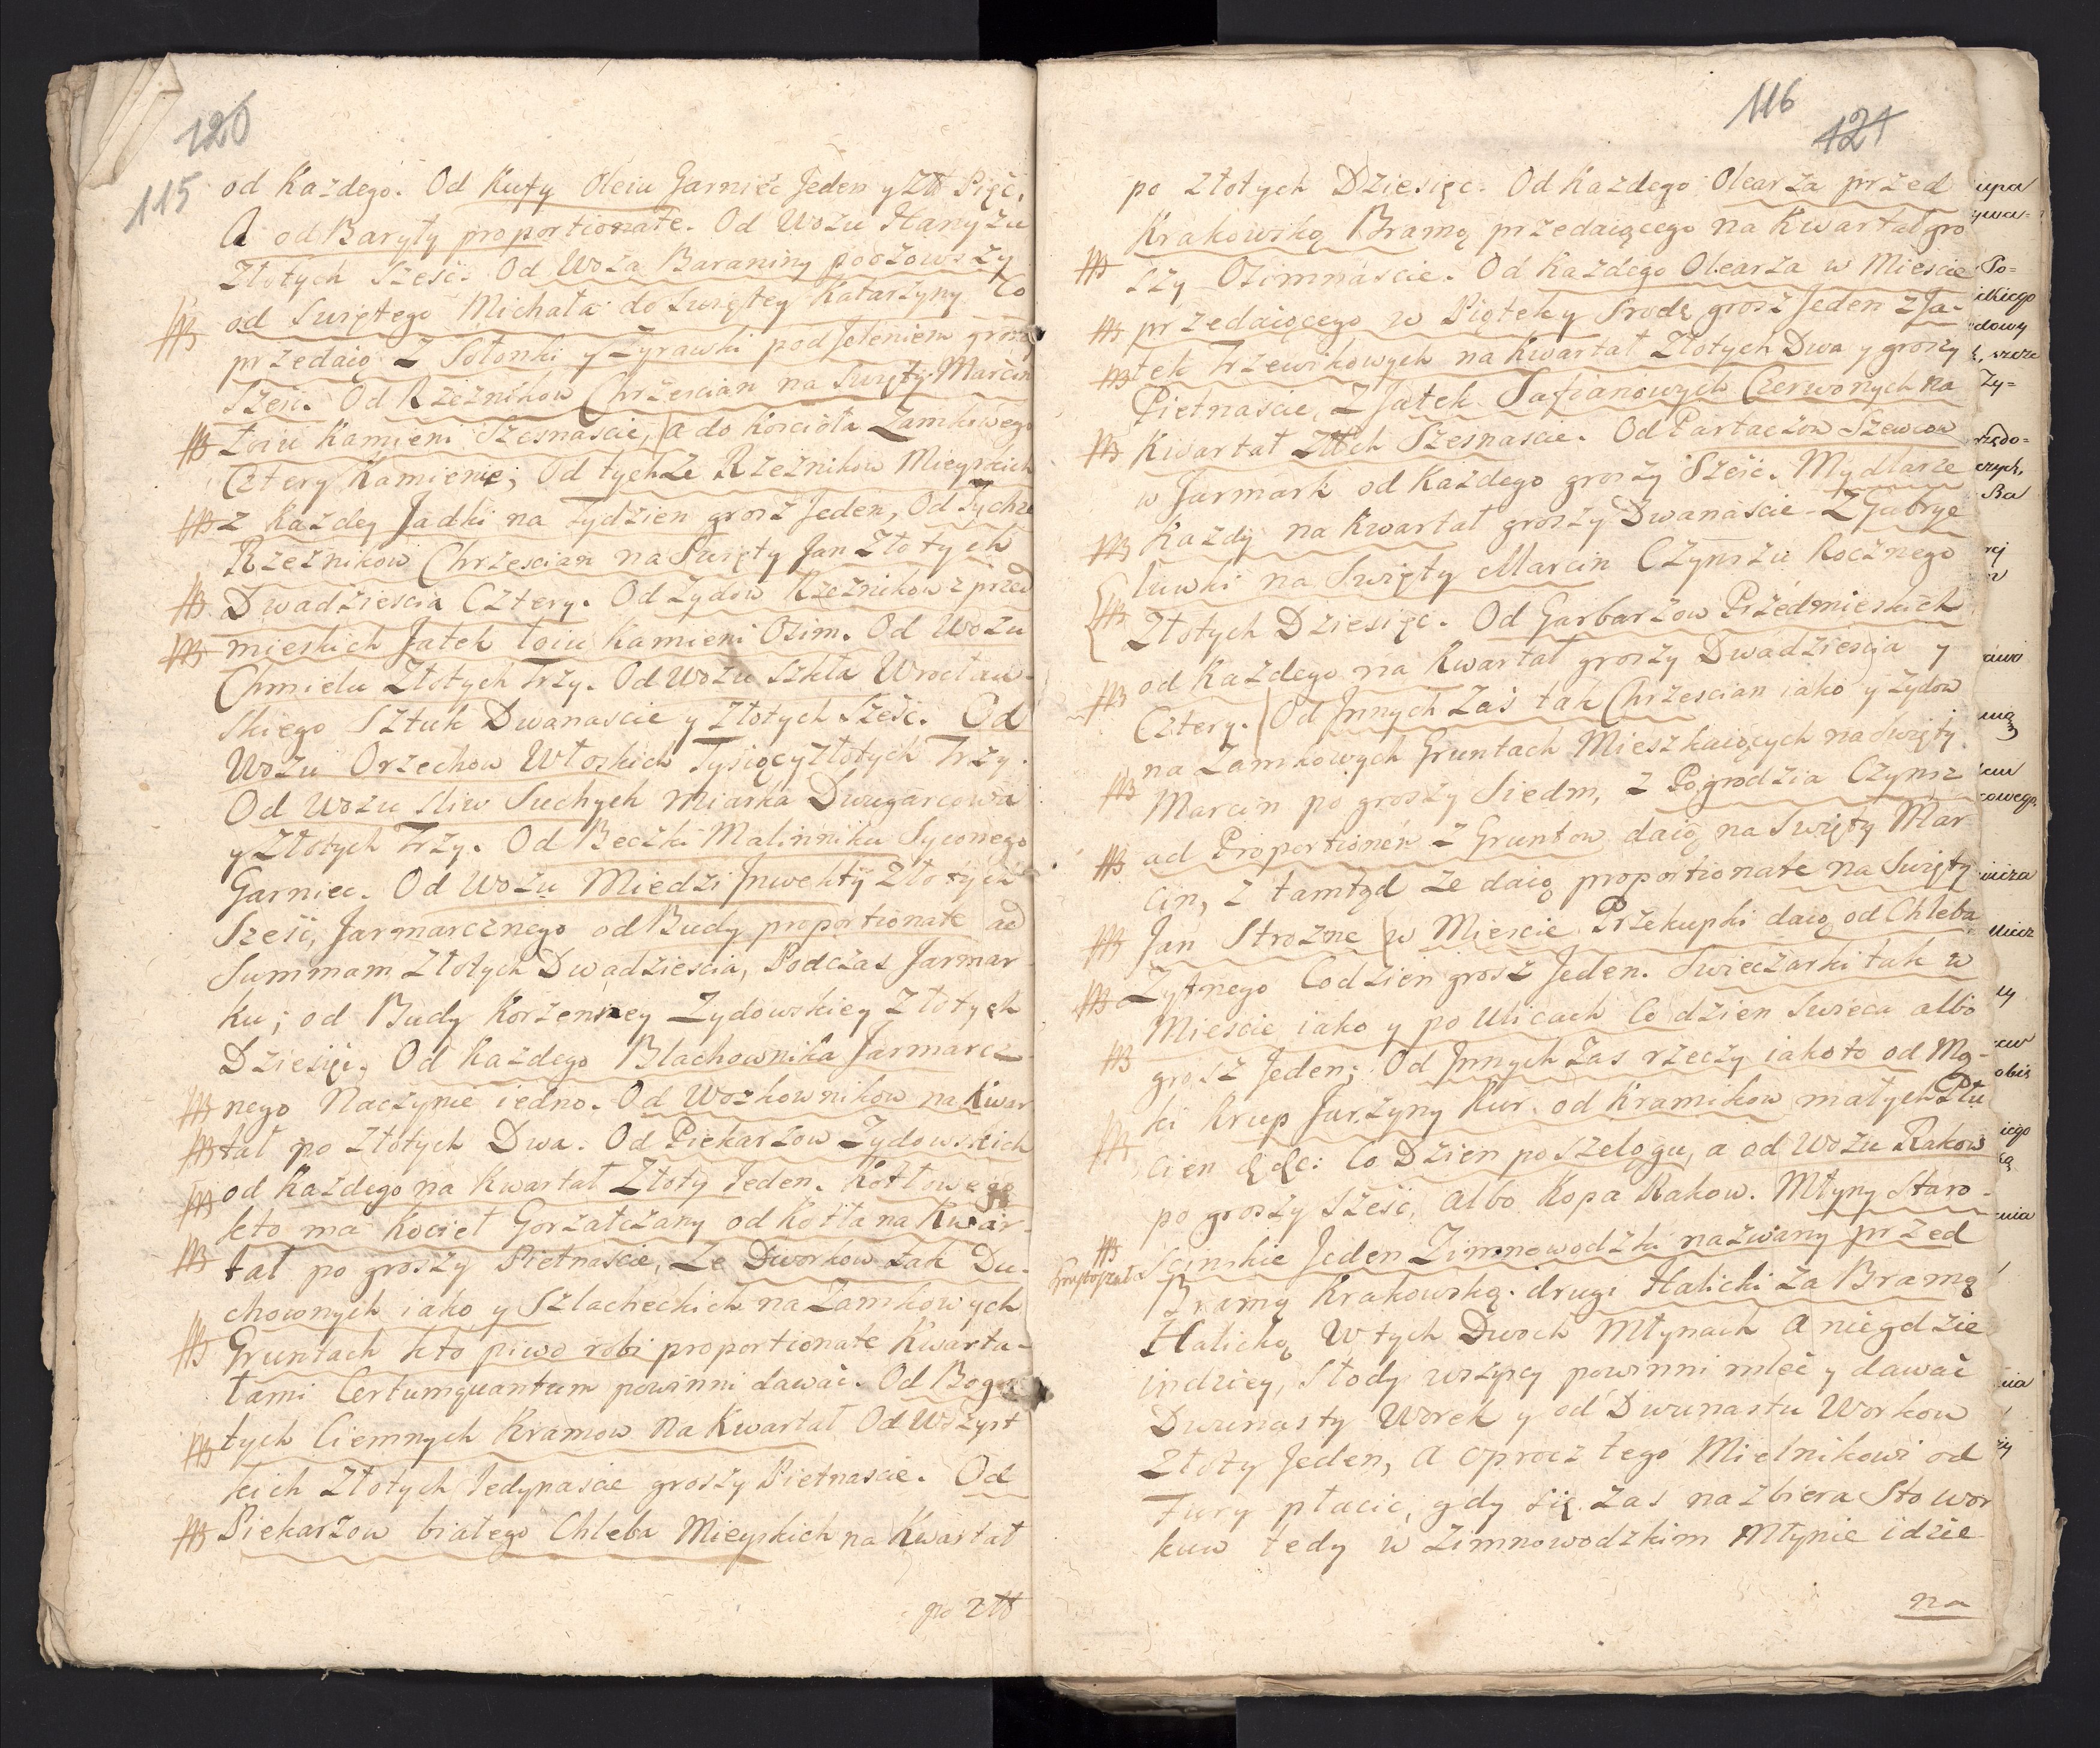 126
115
od Każdego. Od Kufy Oleiu Garniec Jeden y Złł Pięć,
A od Baryły proportionate. Od Wozu Hanyżu
Złotych Sześć. Od Woza Baraniny
od Swiętego Michała do Swiętey Katarzyny Co
przedaią. Z Sołonki y Zyrawki pod Jeleniem groszy
Sześć. Od Rzeznikow Chrzescian na Swięty Marcin
Łoiu Kamieni Szesnascie, a do Kościoła Zamkowego
Cztery Kamienie; Od tychże Rzeznikow Mieyskich
z Każdey Jadki na Tydzien grosz Jeden, Od Tychże
Rzeznikow Chrzescian na Swięty Jan Złotych
Dwadziescia Cztery. Od Zydow Rzeznikow z przed
mieskich Jatek Łoiu Kamieni Osim. Od Wozu
Chmielu Złotych Trzy. Od Wozu Szkła Wrocław-
skiego Sztuk Dwanascie y Złotych Sześć. Od
Wozu Orzechow Włoskich Tysiąc y Złotych Trzy.
Od Wozu Sliw Suchych Miarka Dwugarcowa
y Złotych Trzy. Od Beczki Malinniku Syconego
Garniec. Od Wozu Miedzi Inwekty Złotych
Sześć, Jarmarcznego od Budy proportionate ad
Summam Złotych Dwadziescia, Podczas Jarmar
ku; od Budy Korzenney Zydowskiey Złotych
Dziesięć, Od Każdego Blachownika Jarmarcz-
nego Naczynie iedno. Od Woskownikow na Kwar
tał po Złotych Dwa. Od Piekarzow Zydowskich
od Każdego na Kwartał Złoty Jeden. Kotłowego
kto ma Kocieł Gorzałczany od Kotła na Kwar-
tał po groszy Pietnascie, Ze Dworkow tak Du-
chownych iako y Szlacheckich na Zamkowych
Gruntach kto piwo robi proportionate Kwarta-
łami Certumquantum powinni dawać. Od Boga
tych Ciemnych Kramow na Kwartał Od Wszyst
kich Złotych Jedynascie groszy Pietnascie. Od
Piekarzow białego Chleba Mieyskich na Kwartał
po Złł
116
121
po Złotych Dziesięc. Od Każdego Olearza przed
Krakowską Bramą przedaiącego na Kwartał gro
szy Osimnascie. Od Każdego Olearza w Miescie
przedaiącego w Piątek y Srodę grosz Jeden z Ja-
tek Trzewikowych na Kwartał Złotych Dwa y groszy
Pietnascie, Z Jatek Safianowych Czerwonych na
Kwartał Złłch Szesnascie. Od Partaczow Szewcow
w Jarmark od Każdego groszy Sześć. Mydlarze
Każdy na Kwartał groszy Dwanascie. Z Gabrye
luwki na Swięty Marcin Czynszu Rocznego
Złotych Dziesięc. Od Garbarzow Przedmieskich
od Każdego na Kwartał groszy Dwadziescia y
Cztery. Od Innych Zas tak Chrzescian iako y Zydow
na Zamkowych Gruntach Mieszkaiących na Swięty
Marcin po groszy Siedm, z Pogrodzia Czynsz
ad Proportionem z Gruntow daią na Swięty Mar
cin, z tamtąd ze daią proportionate na Swięty
Jan Strozne w Miescie Przekupki daią od Chleba
Zytnego Codzien grosz Jeden. Swieczarki tak w
Miescie iako y po Ulicach Codzien Swieca albo
grosz Jeden; Od Innych Zas rzeczy iakoto od Mą-
ki Krup Jarzyny Kur. od Kramikow małych Płu
cien &c: Co Dzien po szelągu, a od Wozu Rakow
po groszy Sześć, albo Kopa Rakow. Młyny Staro-
scinskie Jeden Zimnowodzki nazwany przed
Bramą Krakowską. drugi Halicki za Bramą
Halicką W tych Dwoch Młynach a niegdzie
indziey, Słody wszyscy powinni mleć y dawać
Dwunasty Worek y od Dwunastu Workow
Złoty Jeden, a oprocz tego Mielnikowi od
Fury płacic, gdy się zas nazbiera Sto wor
kuw tedy w Zimnowodzkim Młynie idzie
na